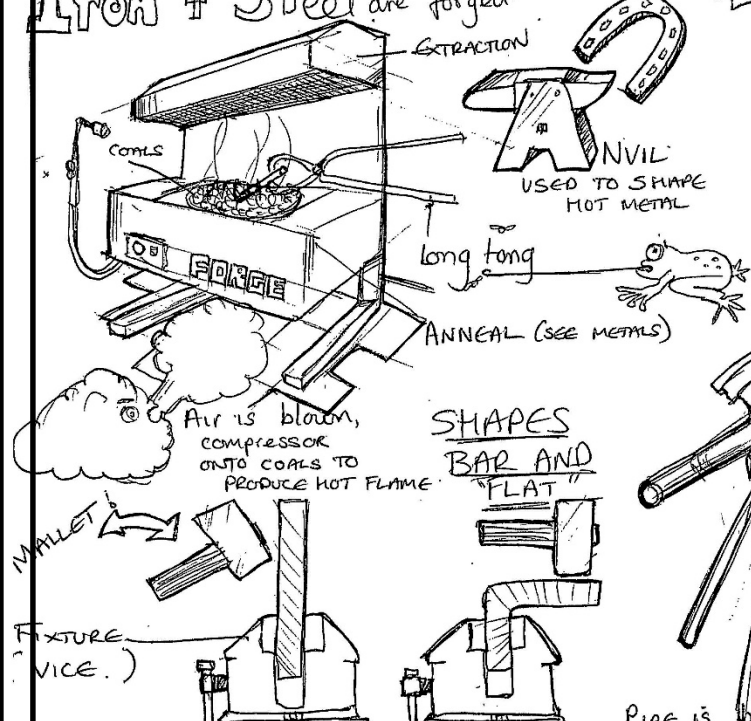 Iron + Steel are forged
EXTRACTION
COALS
NVIL
USED TO SHAPE
HOT METAL
Long tong
FORGE
ANNEAL (SEE METALS)
Air is blown,
compressor
ONTO COALS TO
PRODUCE HOT FLAME
SHAPES
BAR AND
"FLAT"
MALLET
FIXTURE
VICE.)
PIPE is